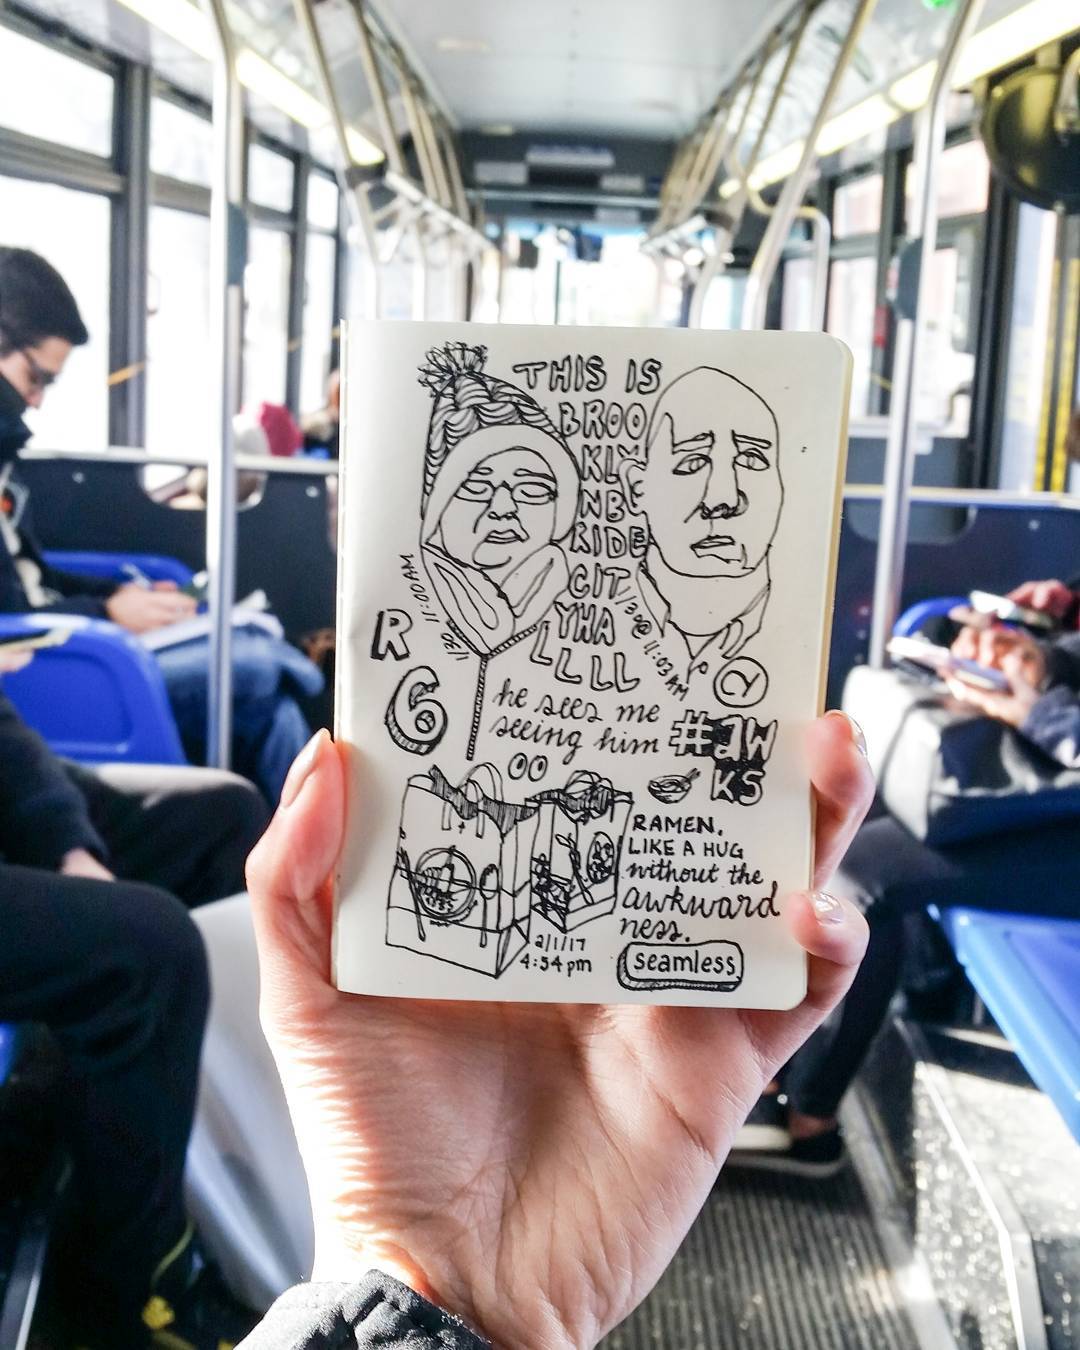 THIS IS
BROO
KLYN
NBC
RIDE
CIT
YHA
LLLL
1/30 11:00 AM
1/3 @ 11:03 AM
R
6
he sees me
seeing him
#aw
ks
RAMEN.
LIKE A HUG
without the
awkward
ness.
seamless
2/1/17
4:54 pm